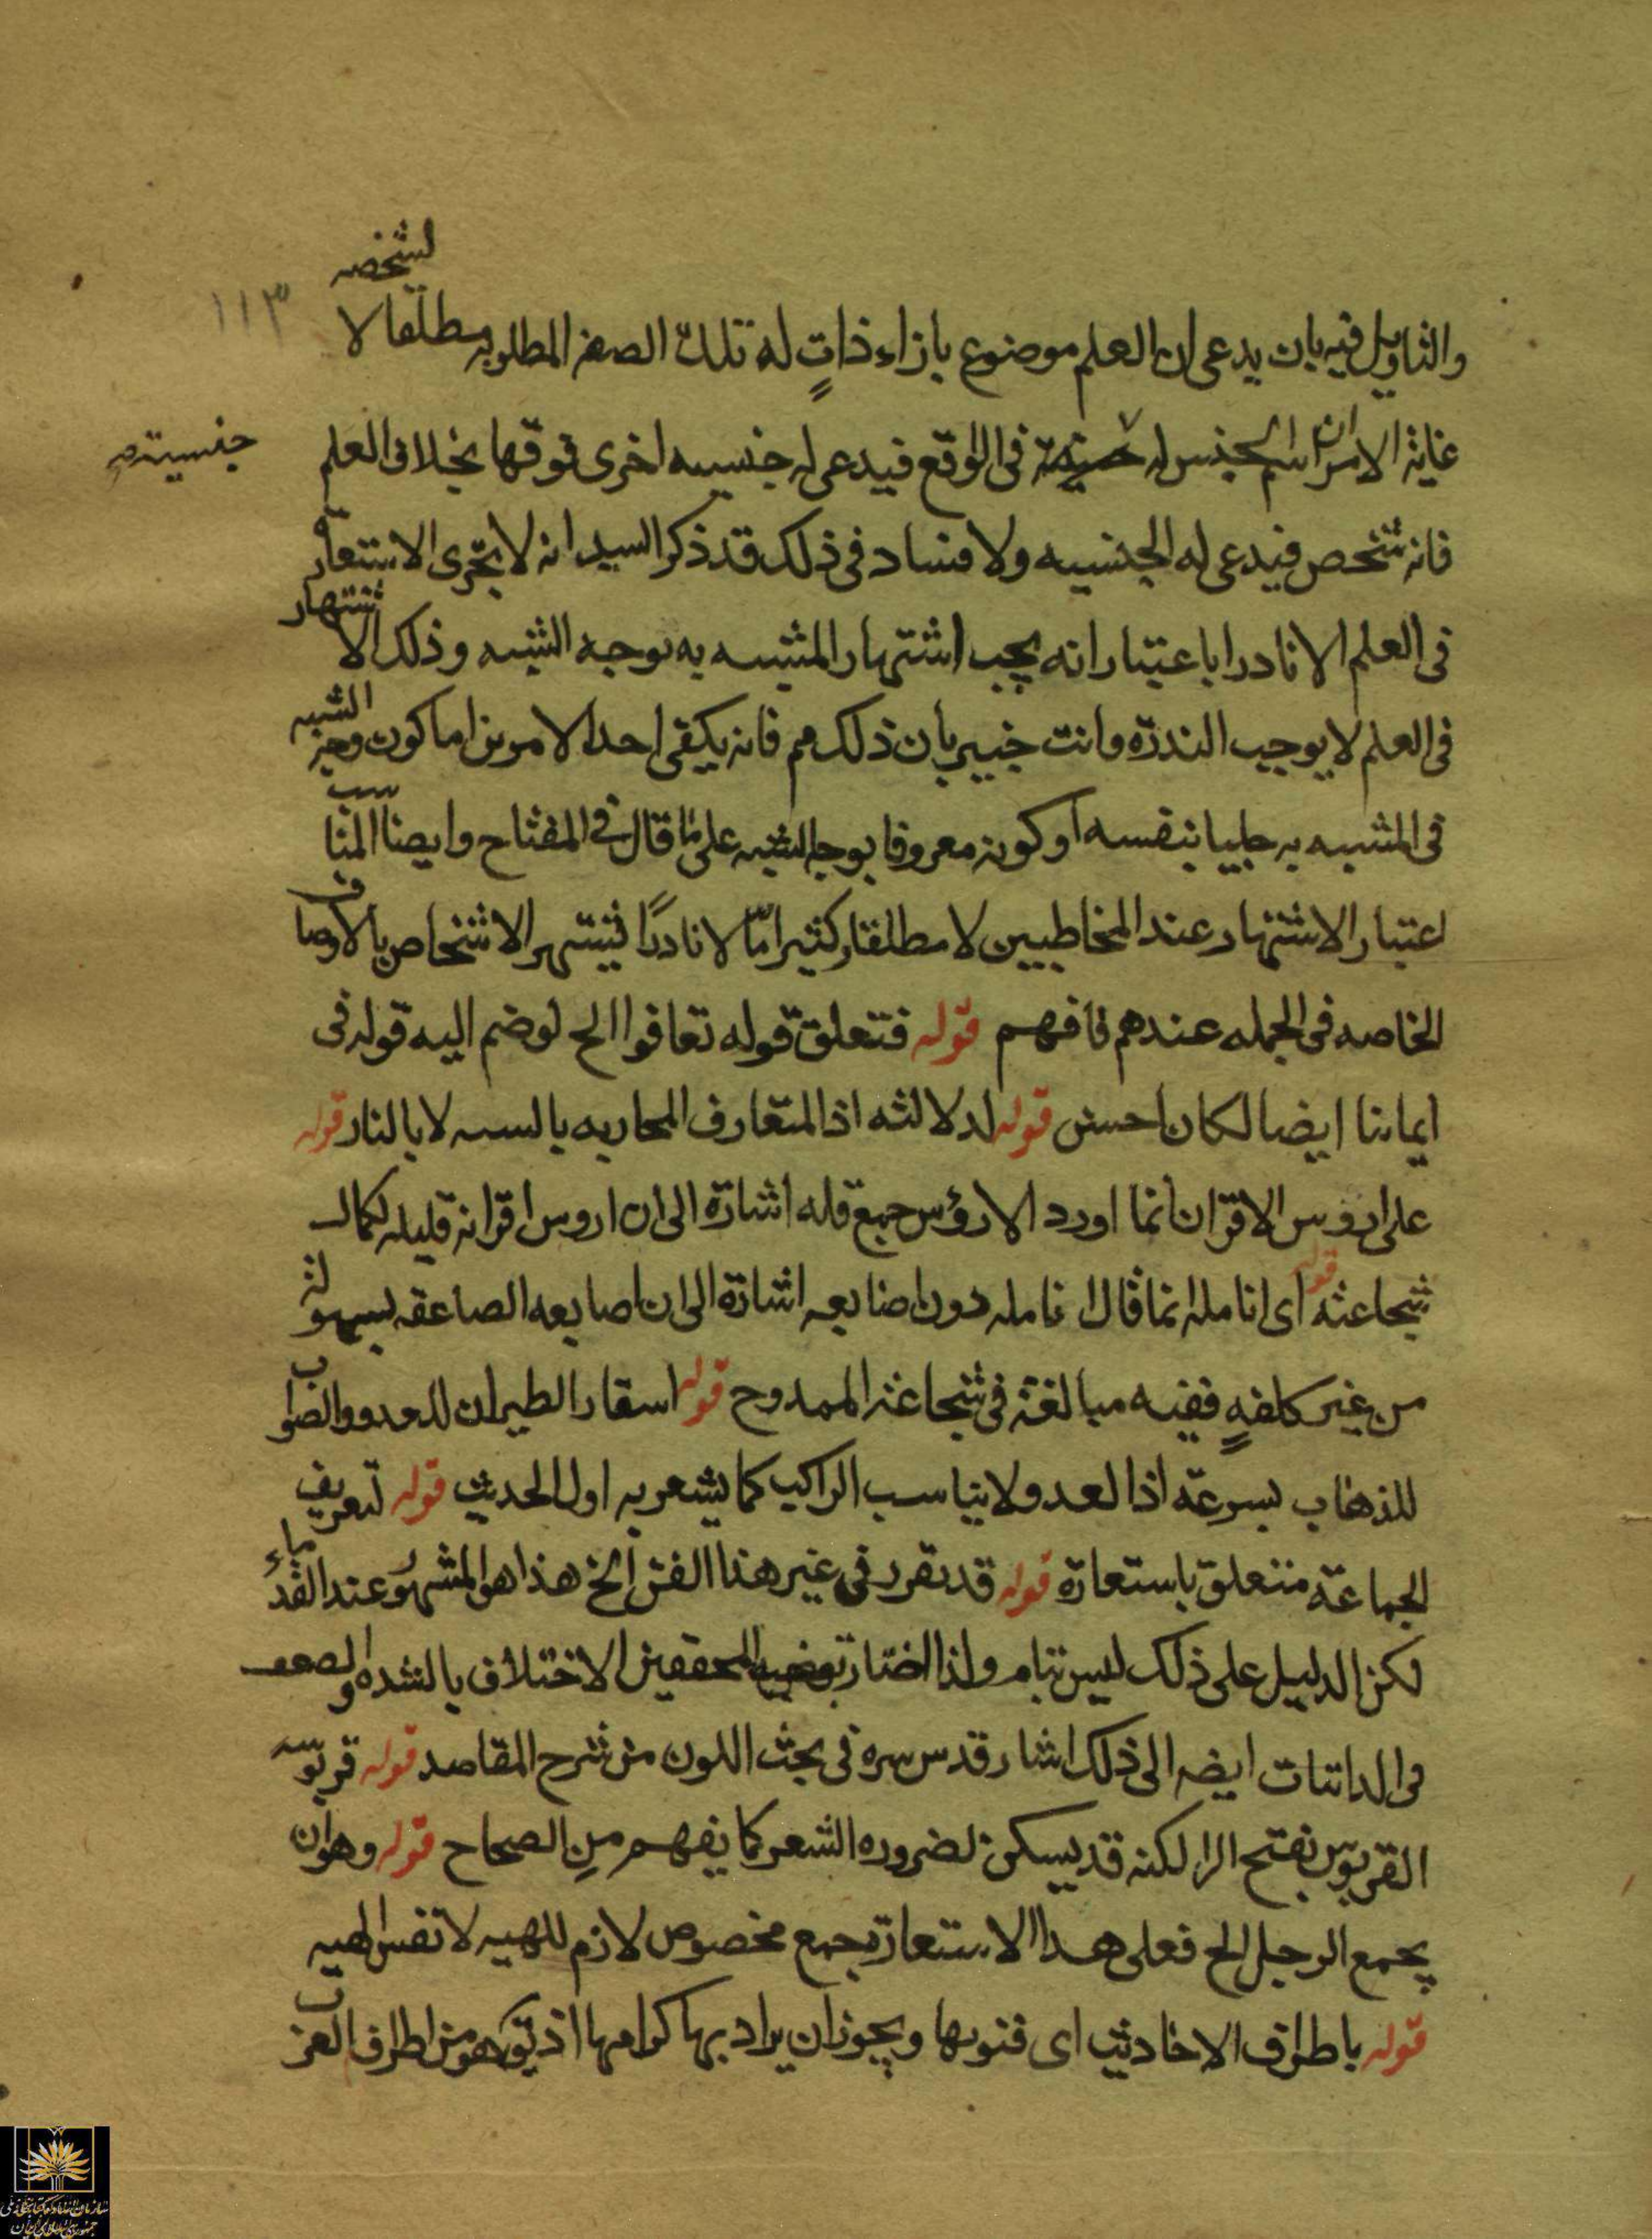 والتاويل فيه بان يدعى ان العلم موضوع بازاء ذاتٍ له تلك الصفه المطلوبه مطلقا لا
لشخصه
١١٣
غاية الامر ان اسم الجنس له في الواقع فيدعى له جنسيه اخرى فوقها بخلاف العلم
جنسيته
فانه شخص فيدعى له الجنسيه ولا فساد في ذلك قد ذكر السيد انه لا يجرى الاستعاره
في العلم الا نادرا باعتبار انه يجب اشتهار المشبه به بوجه الشبه وذلك الاشتهار
في العلم لا يوجب الندرة وانت خبير بان ذلك مم فانه يكفى احد الامرين اما كون وجه الشبه
في المشبه به جليا بنفسه او كونه معروفا بوجه الشبه على ما قال في المفتاح وايضا المناسب
اعتبار الاشتهار عند المخاطبين لا مطلقا وكثيرا مّا لا نادرًا فيشتهر الاشخاص بالاوصاف
الخاصه في الجمله عندهم فافهم قوله فتعلق قوله تعافوا الح لوضم اليه قوله في
ايماننا ايضا لكان احسن قوله لدلالته اذ المتعارف المحاربه بالسيف لا بالنار قوله
على اروس الاقران انما اورد الارؤس جمع قله اشارة الى ان اروس اقرانه قليله لكمال
شجاعته قوله اى انامله انما قال انامله دون اصابعه اشارة الى ان اصابعه الصاعقه بسهولة
من غير كلفةٍ ففيه مبالغة في شجاعة الممدوح قوله استعار الطيران للعدو والصواب
للذهاب بسرعة اذ العدو لا يناسب الراكب كما يشعر به اول الحديث قوله لتعريف
الجماعة متعلق باستعارة قوله قد تقرر في غير هذا الفن الخ هذا هو المشهور عند القدماء
لكن الدليل على ذلك ليس بتام ولذا اختار بعض المحققين الاختلاف بالشده والضعف
في الذاتيات ايضه الى ذلك اشار قدس سره في بحث اللون من شرح المقاصد قوله قربوسه
القربوس بفتح الرا لكنه قد يسكن لضروره الشعر كما يفهم من الصحاح قوله وهو ان
يجمع الرجل الح فعلى هذا الاستعارة بجمع مخصوص لازم للهيه لا نفس الهيه
قوله باطراف الاحاديث اى فنونها ويجوز ان يراد بها كرامها اذ هو من اطراف العرب